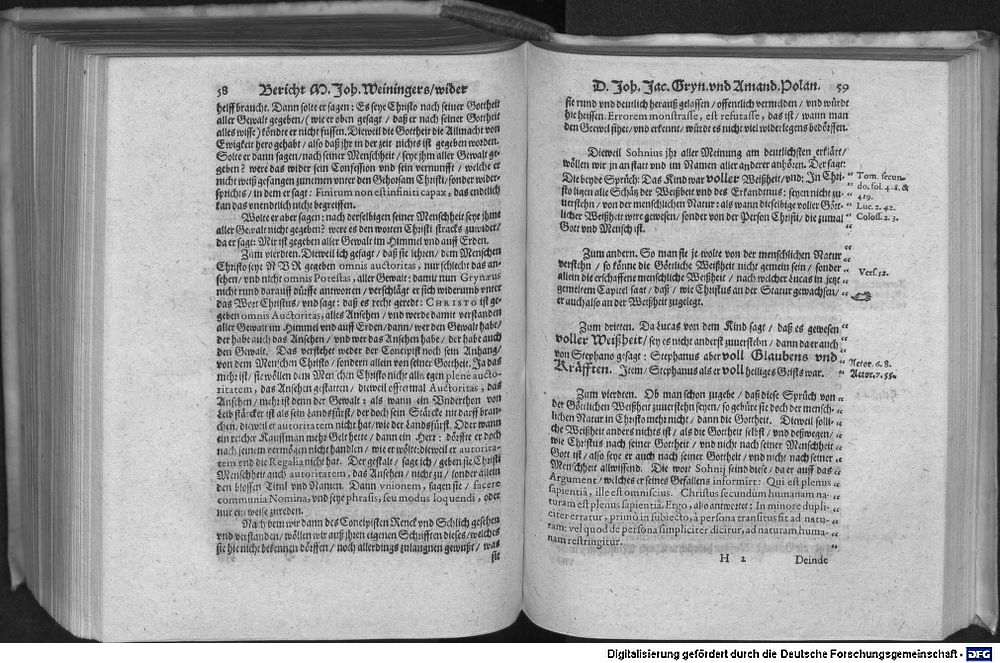 58 Bericht M. Joh. Weiningers/wider
helff braucht. Dann solte er sagen: Es seye Christo nach seiner Gottheit
aller Gewalt gegeben/ (wie er oben gesagt / daß er nach seiner Gottheit
alles wisse) köndte er nicht fussen. Dieweil die Gottheit die Allmacht von
Ewigkeit hero gehabt / also daß ihr in der zeit nichts ist gegeben worden.
Solte er dann sagen/nach seiner Menschheit / seye ihm aller Gewalt ge-
geben? were das wider sein Confession vnd sein vernunfft / welche er
nicht weiß gefangen zunemen vnter den Gehorsam Christi/ sonder wider-
sprichts / in dem er sagt: Finitum non est infiniti capax, das endtlich
kan das vnendtlich nicht begreiffen.
Wolte er aber sagen: nach derselbigen seiner Menschheit seye ihme
aller Gewalt nicht gegeben? were es den worten Christi stracks zuwider/
da er sagt: Mir ist gegeben aller Gewalt im Himmel vnd auff Erden.
Zum vierdten. Dieweil ich gesagt / daß sie lehren/ dem Menschen
Christo seye NVR gegeben omnis auctoritas, nur schlecht das an-
sehen/ vnd nicht omnis Potestas, aller Gewalt: damit nun Grynæus
nicht rund darauff dürffe antworten / verschlägt er sich widerumb vnter
das Wort Christus/ vnd sagt: daß es recht geredt: CHRISTO ist ge-
geben omnis Auctoritas, alles Ansehen / vnd werde damit verstanden
aller Gewalt im Himmel vnd auff Erden/ dann/ wer den Gewalt habe/
der habe auch das Ansehen / vnd wer das Ansehen habe / der habe auch
den Gewalt. Das verstehet weder der Concipist noch sein Anhang/
von dem Menschen Christo / sondern allein von seiner Gottheit. Ja das
mehr ist/ sie wöllen dem Menschen Christo nicht allwegen plenè aucto-
ritatem, das Ansehen gestatten / dieweil offtermal Auctoritas, das
Ansehen / mehr ist denn der Gewalt: als wann ein Vnderthon von
Leib stärcker ist als sein Landsfürst / der doch sein Stärcke nit darff brau-
chen, dieweil er autoritatem nicht hat/ wie der Landsfürst. Oder wann
ein reicher Kauffman mehr Gelt hette / dann ein Herr: dörffte er doch
nach seinem vermögen nicht handlen / wie er wölte: dieweil er autorita-
tem vnd die Regalia nicht hat. Der gestalt / sage ich / geben sie Christi
Menschheit auch autoritatem, das Ansehen / nicht zu / sonder allein
den blossen Titul vnd Namen. Dann vnionem, sagen sie / facere
communia Nomina, vnd seye phrasis, seu modus loquendi, oder
nur ein weise zureden.
Nach dem wir dann des Concipisten Renck vnd Schlich gesehen
vnd verstanden/ wöllen wir auß ihren eigenen Schrifften dieses/welches
sie hie nicht bekennen dörffen / noch allerdings zulaugnen gewußt / was
sie
D. Joh. Jac. Gryn. vnd Amand. Polan. 59
sie rund vnd deutlich herauß gelassen / offentlich vermelden / vnd würde
hie heissen: Errorem monstrasse, est refutasse, das ist / wann man
den Grewel sihet/ vnd erkennt / würde es nicht viel widerlegens bedörffen.
Dieweil Sohnius ihr aller Meinung am deutlichsten erklärt/
wöllen wir jn anstatt vnd im Namen aller anderer anhören. Der sagt:
Die beyde Sprüch: Das Kind war voller Weißheit / vnd: In Chri-
sto ligen alle Schätz der Weißheit vnd des Erkandtnus: seyen nicht zu-
uerstehn / von der menschlichen Natur: als wann dieselbige voller Gött-
licher Weißheit were gewesen / sonder von der Person Christi, die zumal
Gott vnd Mensch ist.
Tom. secun-
do. fol. 418. &
419.
Luc. 2. 42.
Coloss. 2. 3.
Zum andern. So man sie je wolte von der menschlichen Natur
verstehn / so könne die Göttliche Weißheit nicht gemein sein / sonder
allein die erschaffene menschliche Weißheit / nach welcher Lucas in jetzt
gemeltem Capitel sagt / daß / wie Christus an der Statur gewachsen/
er auch also an der Weißheit zugelegt.
Vers. 52.
Zum dritten. Da Lucas von dem Kind sagt / daß es gewesen
voller Weißheit/ sey es nicht anderst zuuerstehn / dann da er auch
von Stephano gesagt: Stephanus aber voll Glaubens vnd
Kräfften. Item / Stephanus als er voll heiliges Geists war.
Actor. 6. 8.
Actor. 7. 55.
Zum vierdten. Ob man schon zugebe / daß diese Sprüch von
der Göttlichen Weißheit zuuerstehn seyen / so gebüre sie doch der mensch-
lichen Natur in Christo mehr nicht / dann die Gottheit. Dieweil sollī-
che Weißheit anders nichts ist / als die Gottheit selbst / vnd deßwegen/
wie Christus nach seiner Gottheit / vnd nicht nach seiner Menschheit
Gott ist / also seye er auch nach seiner Gottheit / vnd nicht nach seiner
Menschheit allwissend. Die wort Sohnij seind diese / da er auff das
Argument / welches er seines Gefallens informirt: Qui est plenus
sapientiâ, ille est omniscius. Christus secundum humanam na-
turam est plenus sapientiâ. Ergo, also antwortet: In minore dupli-
citer erratur, primò in subiecto, à persona transitus fit ad natu-
ram: vel quod de persona simpliciter dicitur, ad naturam huma-
nam restringitur.
H 2 Deinde
Digitalisierung gefördert durch die Deutsche Forschungsgemeinschaft - DFG